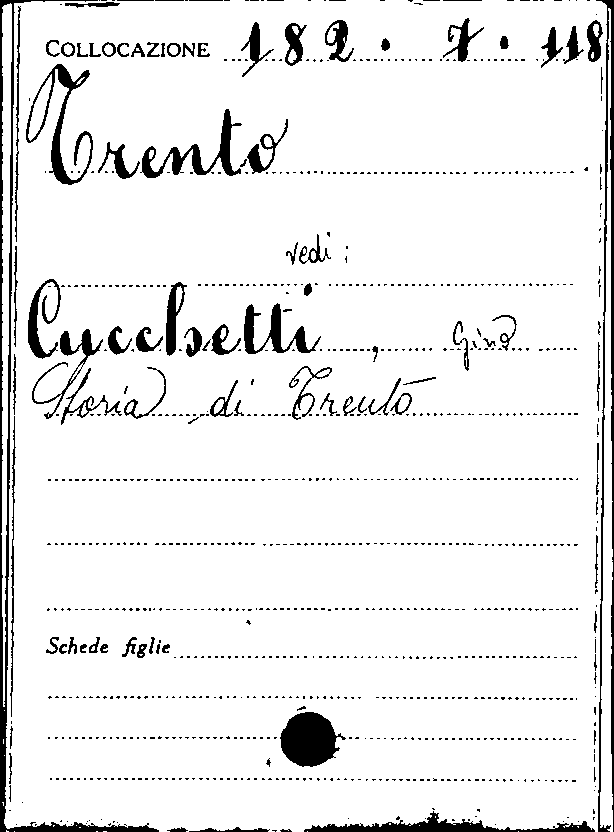 COLLOCAZIONE 182 . 7 . 118
Trento
vedi :
Cucchetti , Gino
Storia di Trento
Schede figlie